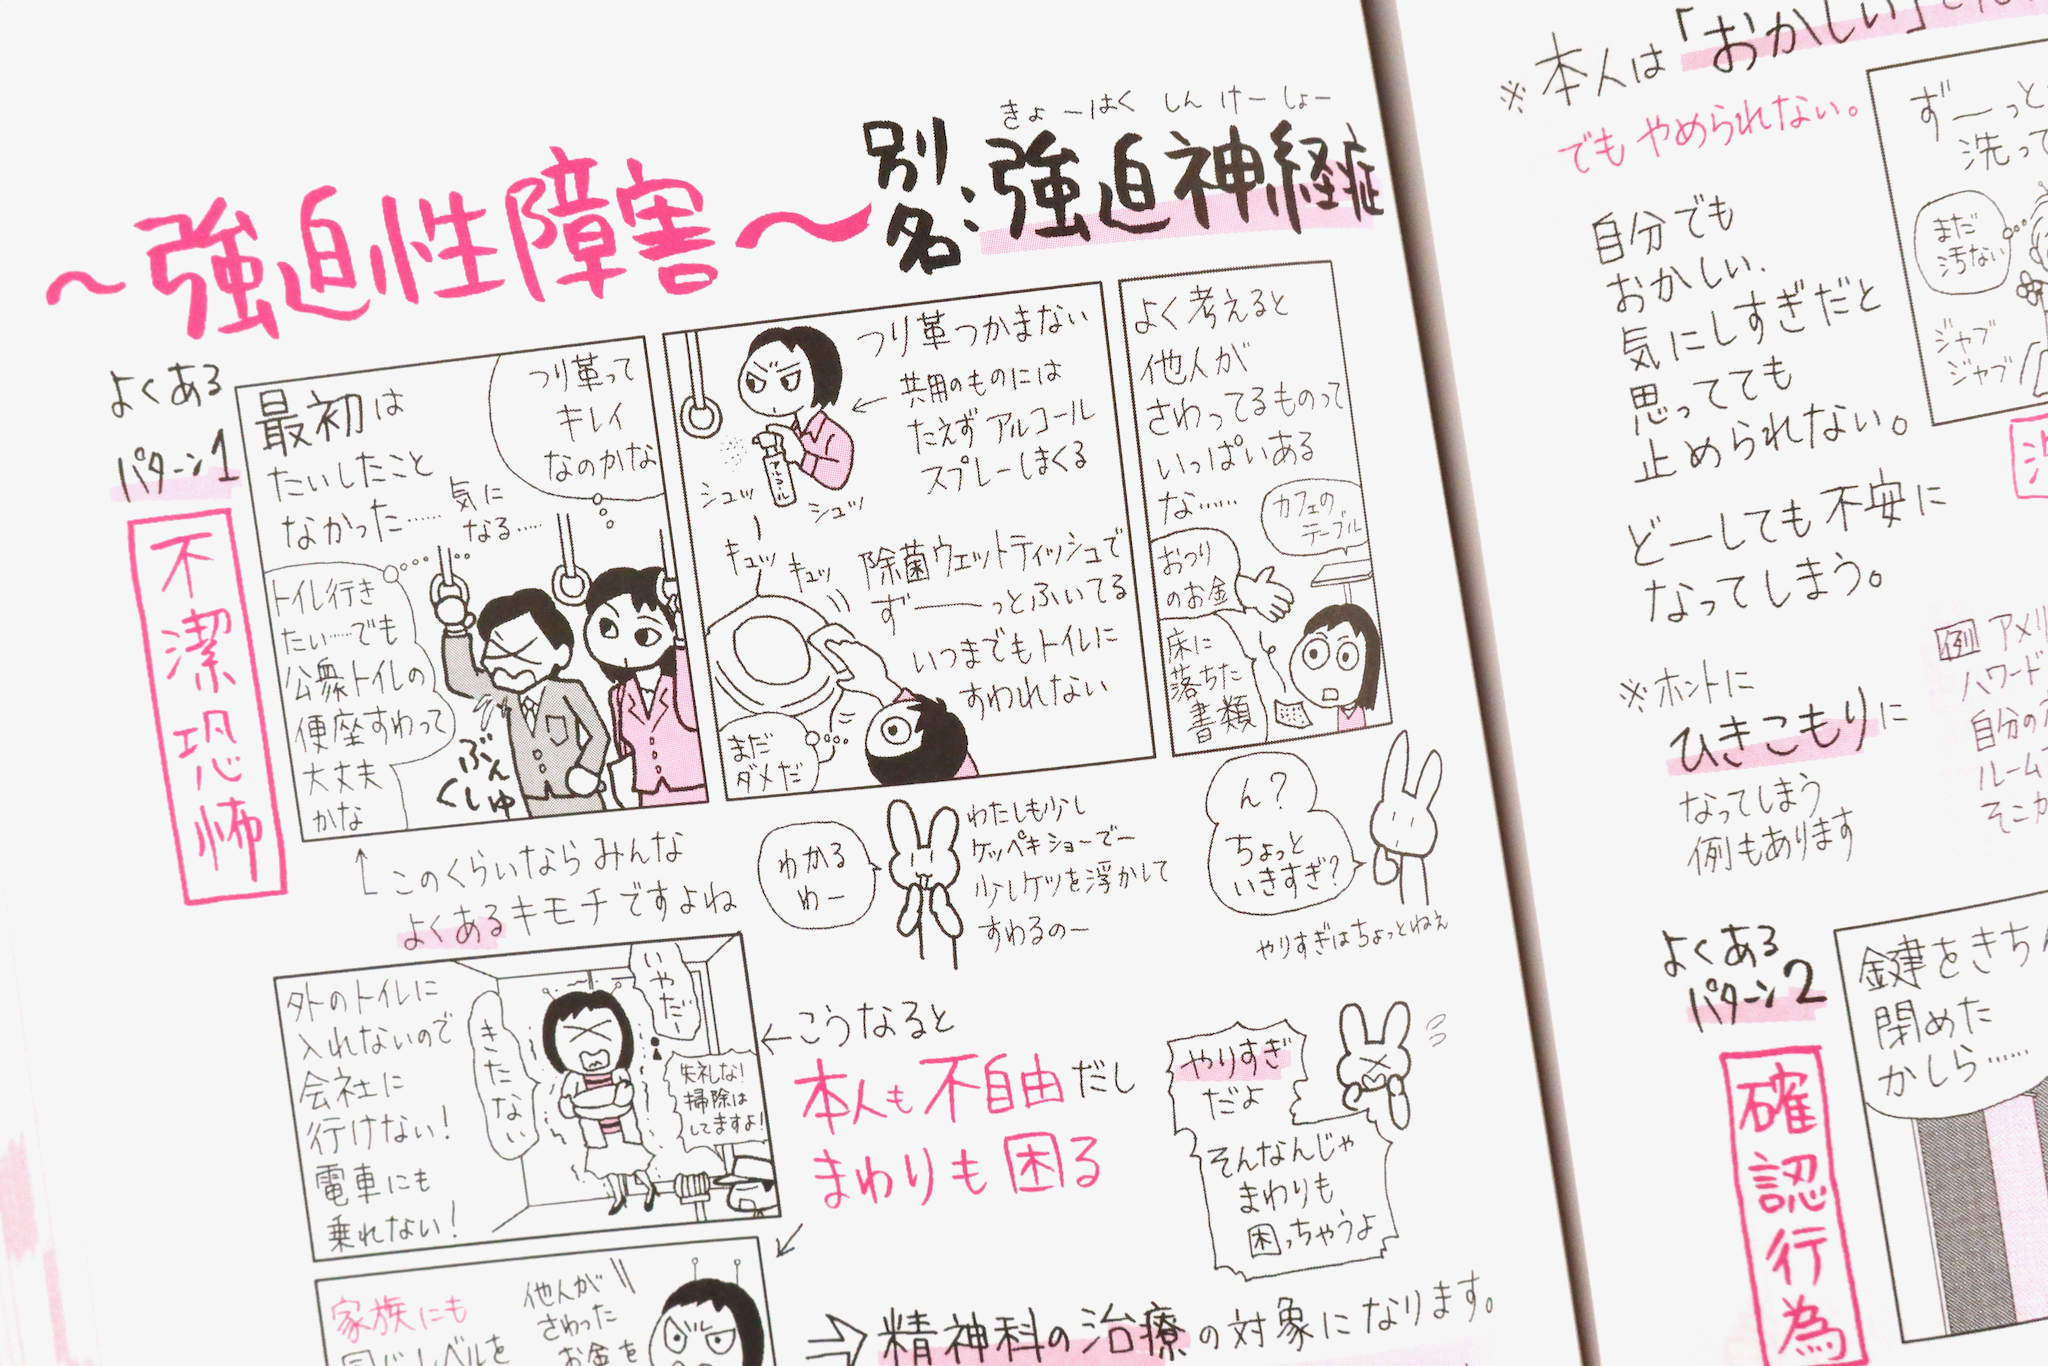 ～強迫性障害～
別名：強迫神経症
きょーはく しんけーしょー
よくある
パターン1
不潔恐怖
最初は
たいしたこと
なかった……
つり革って
キレイ
なのかな
気に
なる……
トイレ行き
たい……でも
公衆トイレの
便座すわって
大丈夫
かな
ぶぇっ
くしゅ
↑このくらいならみんな
よくあるキモチですよね
つり革つかまない
←共用のものには
たえずアルコール
スプレーしまくる
アルコール
シュッ
シュッ
キュッ
キュッ
除菌ウェットティッシュで
ずーーっとふいてる
いつまでもトイレに
すわれない
まだ
ダメだ
よく考えると
他人が
さわってるものって
いっぱいある
な……
カフェの
テーブル
おつり
のお金
床に
落ちた
書類
わかる
わー
わたしも少し
ケッペキショーでー
少しケツを浮かして
すわるのー
ん？
ちょっと
いきすぎ？
やりすぎはちょっとねぇ
外のトイレに
入れないので
会社に
行けない！
電車にも
乗れない！
いやだー
きたない
失礼な！
掃除は
してますよ！
←こうなると
本人も不自由だし
まわりも困る
やりすぎ
だよ
そんなんじゃ
まわりも
困っちゃうよ
家族にも
同じレベルを
他人が
さわった
お金を
⇒精神科の治療の対象になります。
※本人は「おかしい」と
でもやめられない。
自分でも
おかしい、
気にしすぎだと
思ってても
止められない。
どーしても不安に
なってしまう。
ずーっと
洗って
まだ
汚ない
ジャブ
ジャブ
※ホントに
ひきこもりに
なってしまう
例もあります
例 アメリ
ハワード
自分の
ルーム
そこか
よくある
パターン2
確認行為
鍵をきちん
閉めた
かしら……